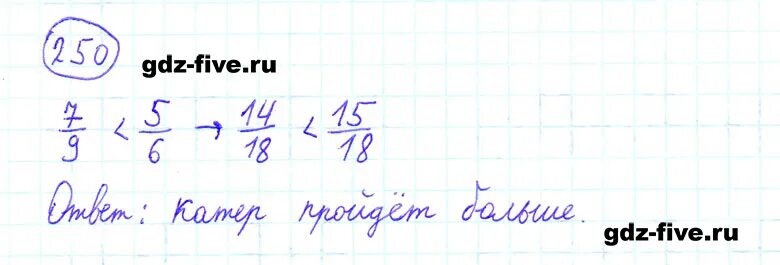 250
gdz-five.ru
7/9 < 5/6 → 14/18 < 15/18
Ответ: Катер пройдёт больше.
gdz-five.ru